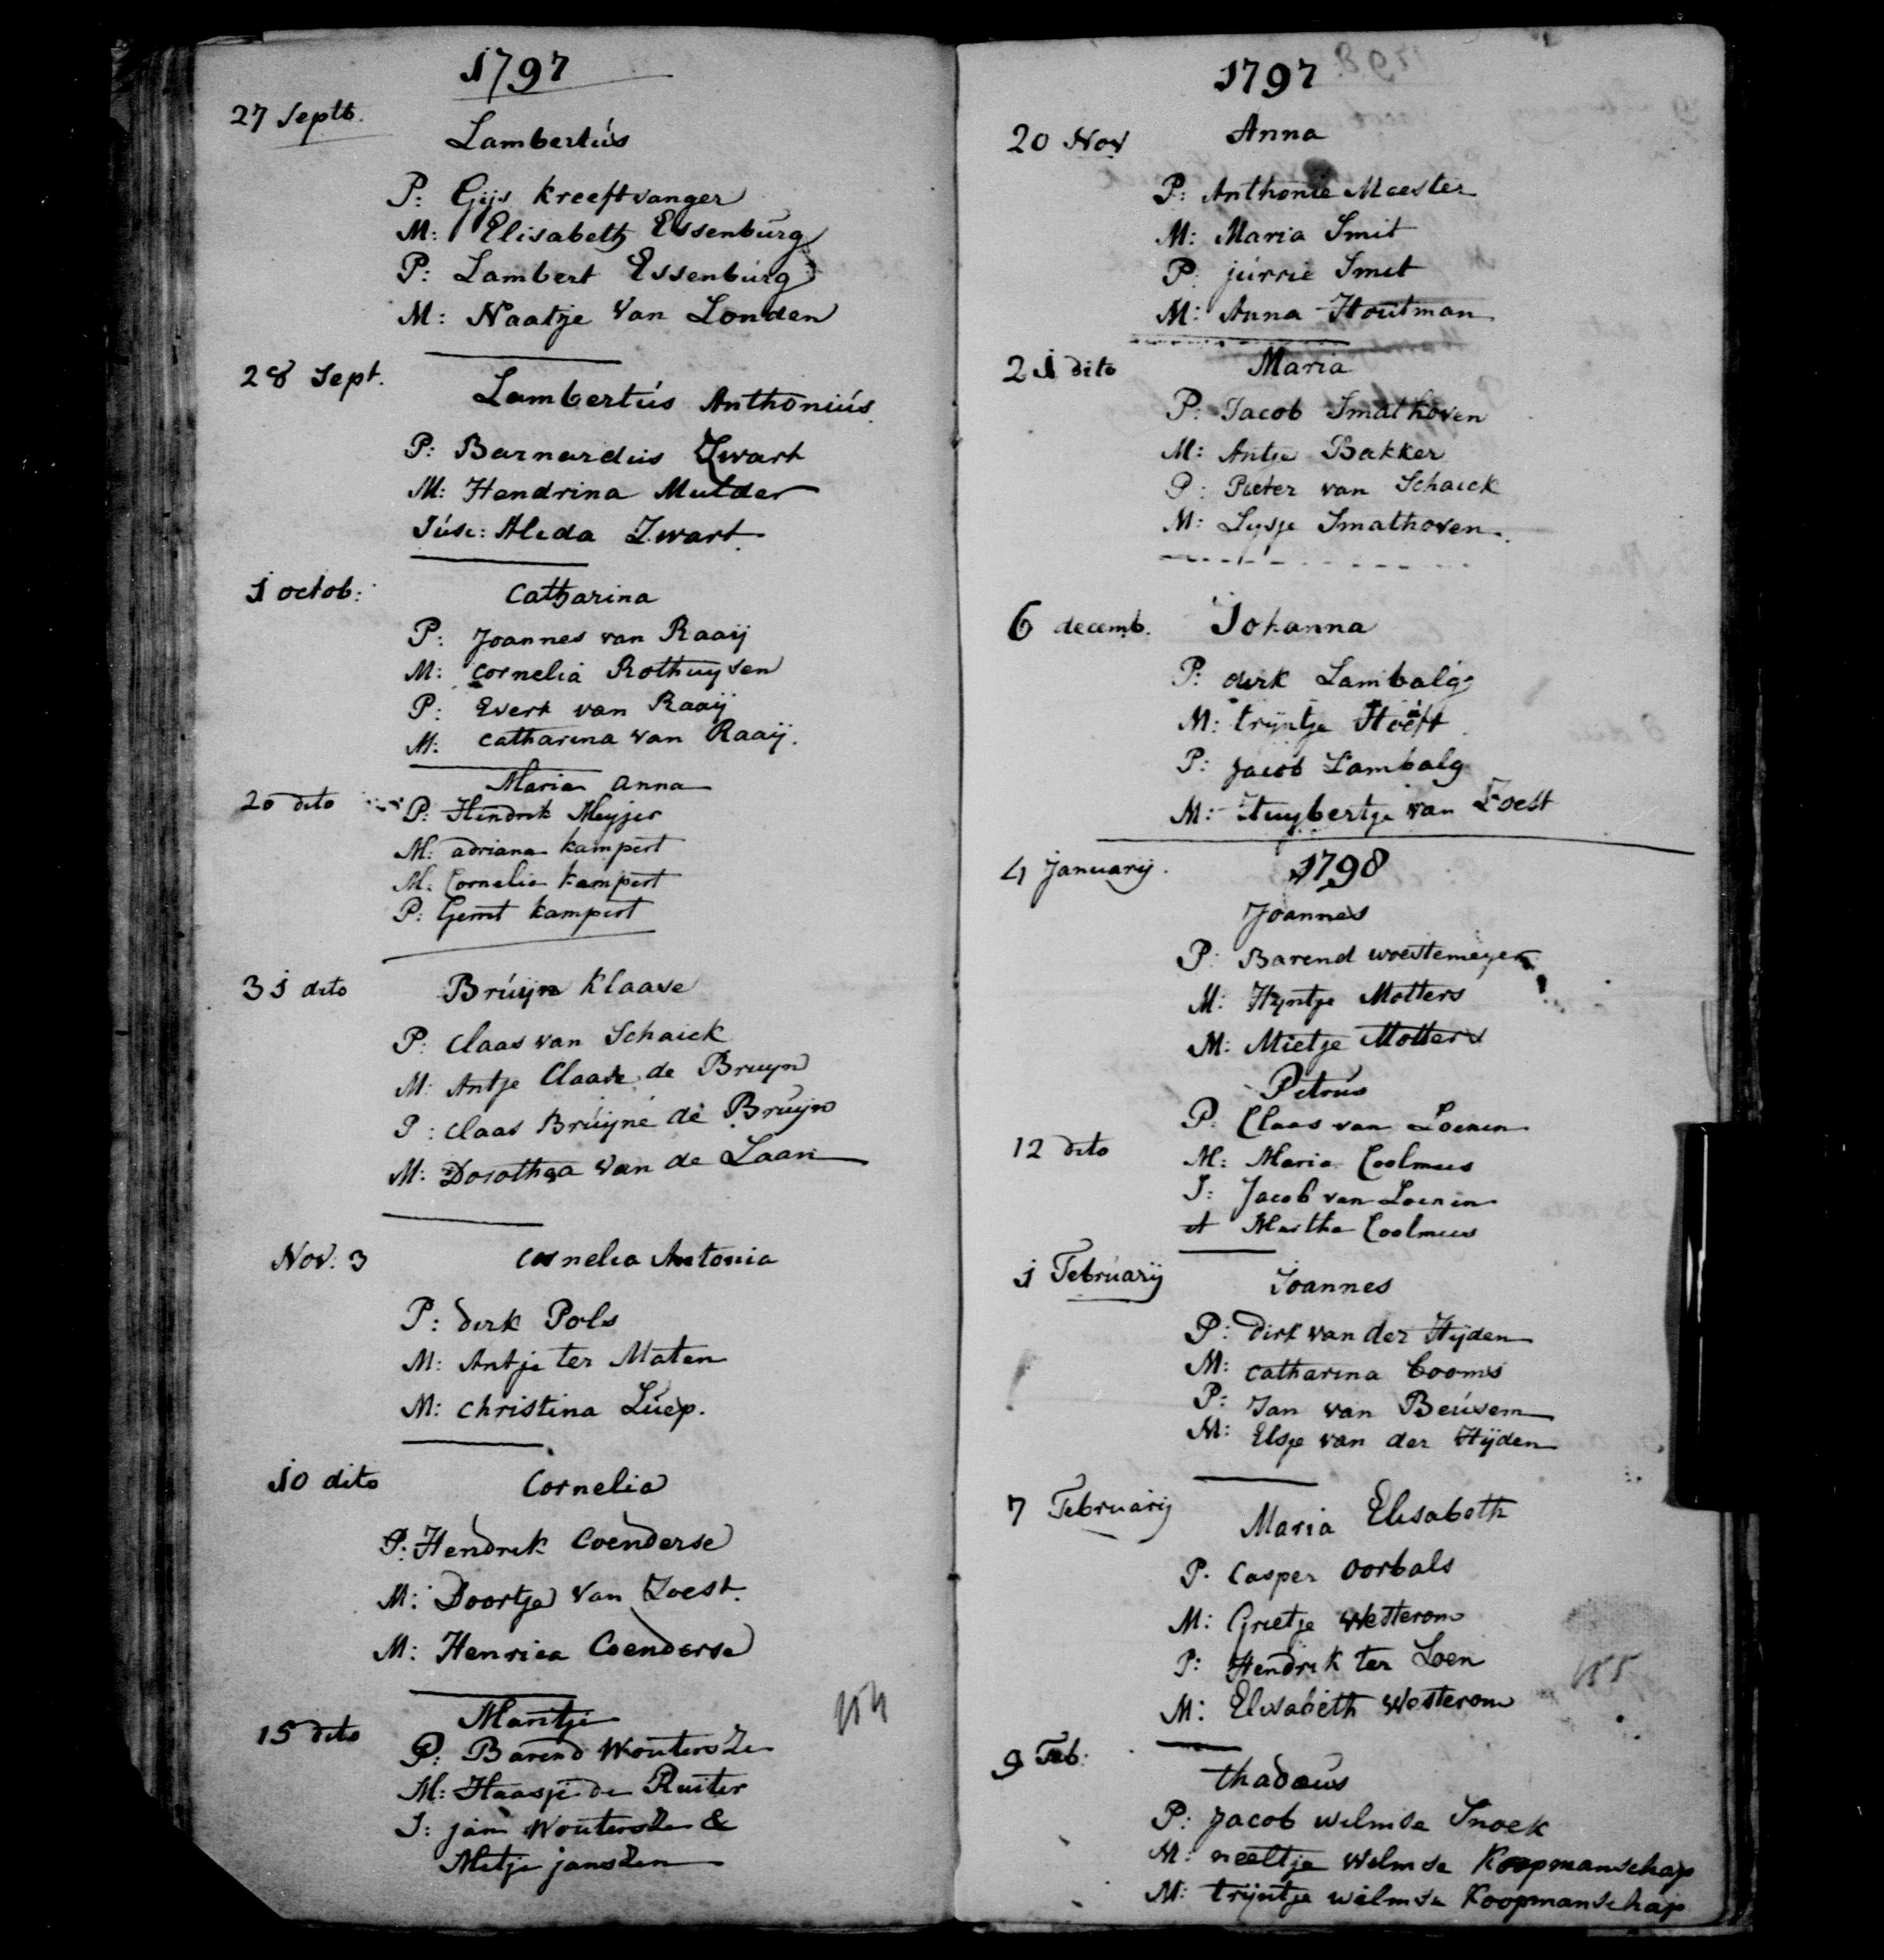 1797
27 Septb.
Lambertús
P: Gijs kreeftvanger
M: Elisabeth Essenburg
P: Lambert Essenbúrg
M: Naatje van Londen
28 Sept.
Lambertús Anthoniús
P: Barnardús Zwart
M: Hendrina Mulder
Súsc: Aleda Zwart
1 octob:
Catharina
P: Joannes van Raaij
M: Cornelia Rothuysen
P: Evert van Raaij
M: Catharina van Raaij.
Maria Anna
20 dito P: Hendrik Meyjer
M: adriana kampert
M: Cornelia kampert
P: Gerrit kampert
31 dito
Brúijn Klaase
P: Claas van Schaick
M: Antje Claase de Bruyn
P: Claas Brúijne de Brúijn
M: Dorothea van de Laan
Nov. 3
Cornelia Antonia
P: dirk Pols
M: Antje ter Maten
M: Christina Lúep.
10 dito
Cornelia
P: Hendrik Coenderse
M: Doortje van Zoest.
M: Henrica Coenderse
15 dito
Maritje
P: Barend WoutersZe
M: Haasje de Ruiter
S: jan WoutersZe &
Metje jansZen
154
1797
20 Nov
Anna
P: Anthonie Meester
M: Maria Smit
P: júrrie Smit
M: Anna Houtman
21 dito
Maria
P: Jacob Smathoven
M: Antje Bakker
P: Pieter van Schaick
M: Lysje Smathoven.
6 decemb.
Johanna
P: dirk Lambalg
M: trijntje Hooft
P: Jacob Lambalg
M: Huybertje van Zoest
4 Januarij.
1798
Joannes
P: Barend woestemeyer
M: Hyntje Motters
M: Mietje Motters
Petrús
P: Claas van Loenen
12 dito
M: Maria Coolmees
S: Jacob van Loenen
et Martha Coolmees
1 Februarij
Joannes
P: Dirk van der Hijden
M: Catharina Cooms
P: Jan van Beúsem
M: Elsje van der Hijden
7 Februarij
Maria Elisabeth
P. Casper oorbals
M: Grietje Westerom
P: Hendrik ter Loen
M: Elisabeth Westerom
155
9 Feb:
thadæús
P: Jacob wilmse Snoek
M: neeltje Wilmse Koopmanschap
M: trijntje wilmse Koopmanschap